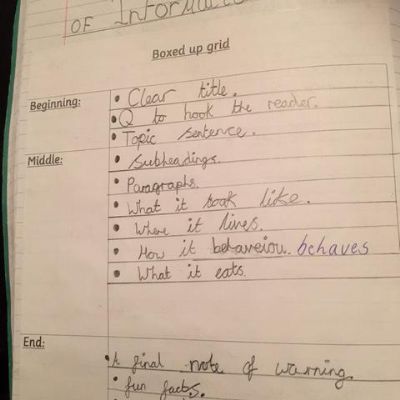 OF
Boxed up grid
Beginning:
• Clear title.
• Q to hook the reader.
• Topic sentence.
Middle:
• Subheadings.
• Paragraphs.
• What it look like.
• Where it lives.
• How it behaveiou. behaves
• What it eats.
End:
• A final note of warning.
• fun facts.